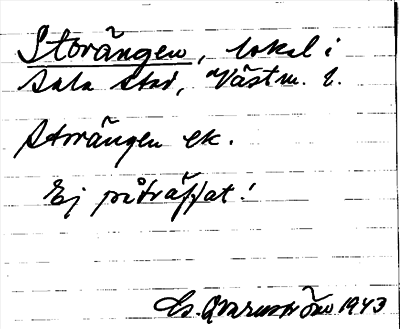 Storängen, lokal i
Sala stad, Västm. l.
Storängen ek.
Ej påträffat!
Es. Qvarnström 1943